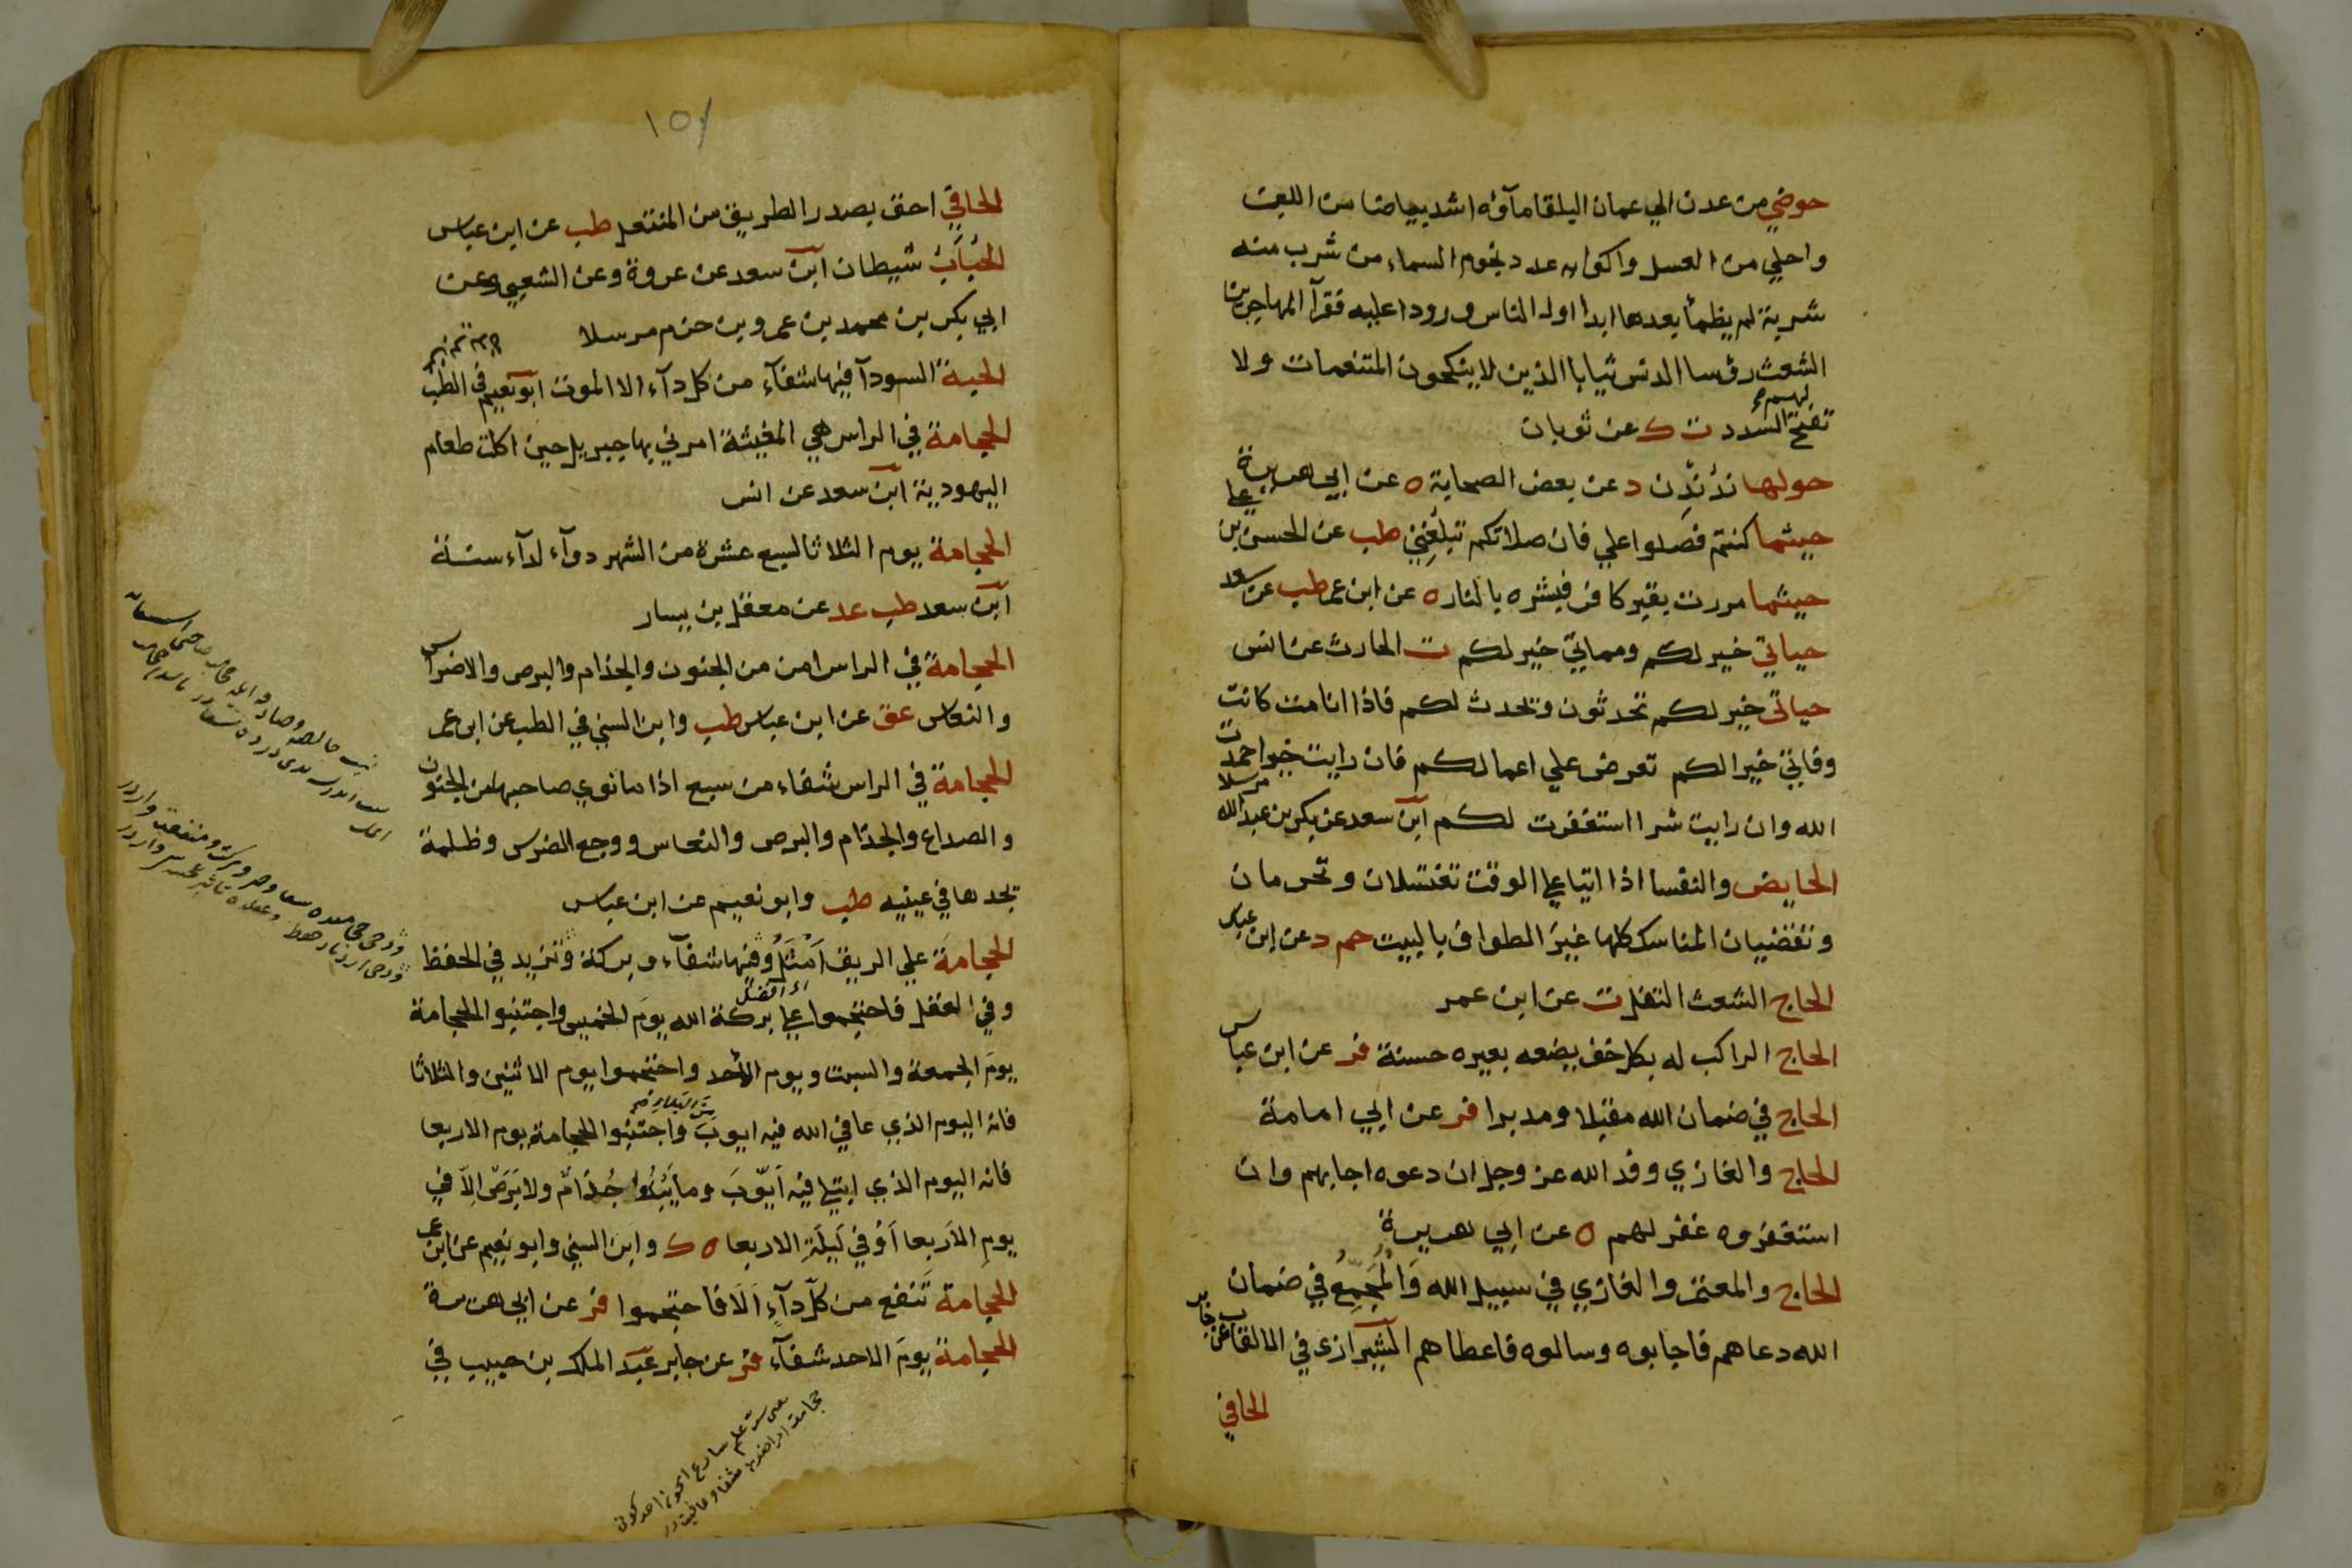 حوضي من عدن الي عمان البلقا مآؤه اشد بياضا من اللبن
واحلي من العسل واكوابه عدد نجوم السماء من شرب منه
شربة لم يظمأ بعدها ابدا اول الناس ورودا عليه فقرآ المهاجرين
الشعث رؤسا الدنس ثيابا الذين لا ينكحون المتنعمات ولا
تفتح لهم السدد ت ك عن ثوبان
حولها ندندن د عن بعض الصحابة ه عن ابي هريرة
حيثما كنتم فصلوا علي فان صلاتكم تبلغني طب عن الحسن بن علي
حيثما مررت بقبر كافر فبشره بالنار ه عن ابن عمر طب عن سعد
حياتي خير لكم ومماتي خير لكم ت الحارث عن انس
حياتي خير لكم تحدثون ونحدث لكم فاذا انا مت كانت
وفاتي خيرا لكم تعرض علي اعمالكم فان رايت خيرا حمدت
الله وان رايت شرا استغفرت لكم ابن سعد عن بكر بن عبد الله مرسلا
الحايض والنفسا اذا اتيا علي الوقت تغتسلان وتحرمان
وتقضيان المناسك كلها غير الطواف بالبيت حم د عن ابن عباس
الحاج الشعث التفل ت عن ابن عمر
الحاج الراكب له بكل خف يضعه بعيره حسنة فر عن ابن عباس
الحاج في ضمان الله مقبلا ومدبرا فر عن ابي امامة
الحاج والغازي وفد الله عز وجل ان دعوه اجابهم وان
استغفروه غفر لهم ه عن ابي هريرة
الحاج والمعتمر والغازي في سبيل الله والمجمع في ضمان
الله دعاهم فاجابوه وسالوه فاعطاهم الشيرازي في الالقاب عن جابر
الحافي
١٥٧
الحافي احق بصدر الطريق من المنتعل طب عن ابن عباس
الحباب شيطان ابن سعد عن عروة وعن الشعبي وعن
ابي بكر بن محمد بن عمرو بن حزم مرسلا
الحبة السودآ فيها شفآء من كل دآء الا الموت ابو نعيم في الطب
الحجامة في الراس هي المغيثة امرني بها جبريل حين اكلت طعام
اليهودية ابن سعد عن انس
الحجامة يوم الثلاثا لسبع عشرة من الشهر دوآء لدآء سنة
ابن سعد طب عد عن معقل بن يسار
الحجامة في الراس امن من الجنون والجذام والبرص والاضراس
والنعاس عق عن ابن عباس طب وابن السني في الطب عن ابن عمر
الحجامة في الراس شفاء من سبع اذا ما نوي صاحبها من الجنون
والصداع والجذام والبرص والنعاس ووجع الضرس وظلمة
يجدها في عينيه طب وابو نعيم عن ابن عباس
الحجامة علي الريق امثل وفيها شفآء وبركة وتزيد في الحفظ
اي افضل
وفي العقل فاحتجموا علي بركة الله يوم الخميس واجتنبوا الحجامة
يوم الجمعة والسبت ويوم الأحد واحتجموا يوم الاثنين والثلاثا
فانه اليوم الذي عافي الله فيه ايوب من البلاء واجتنبوا الحجامة يوم الاربعا
فانه اليوم الذي ابتلي فيه ايوب وما يبدوا جذام ولا برص الا في
يوم الاربعا او في ليلة الاربعا ه ك وابن السني وابو نعيم عن ابن عمر
الحجامة تنفع من كل دآء الا فاحتجموا فر عن ابي هريرة
الحجامة يوم الاحد شفآء فر عن جابر عبد الملك بن حبيب في